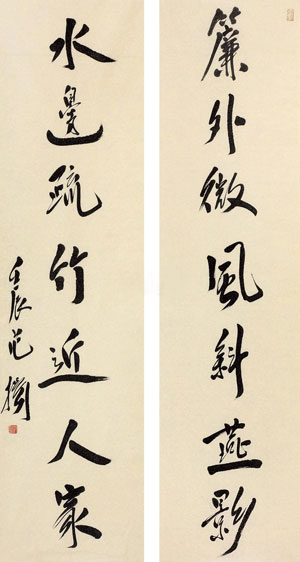 簾外微風斜燕影
水邊疏竹近人家
壬辰